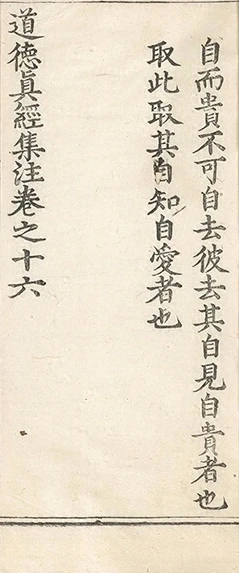 自而貴不可自去彼去其自見自貴者也
取此取其自知自愛者也
道德真經集注卷之十六